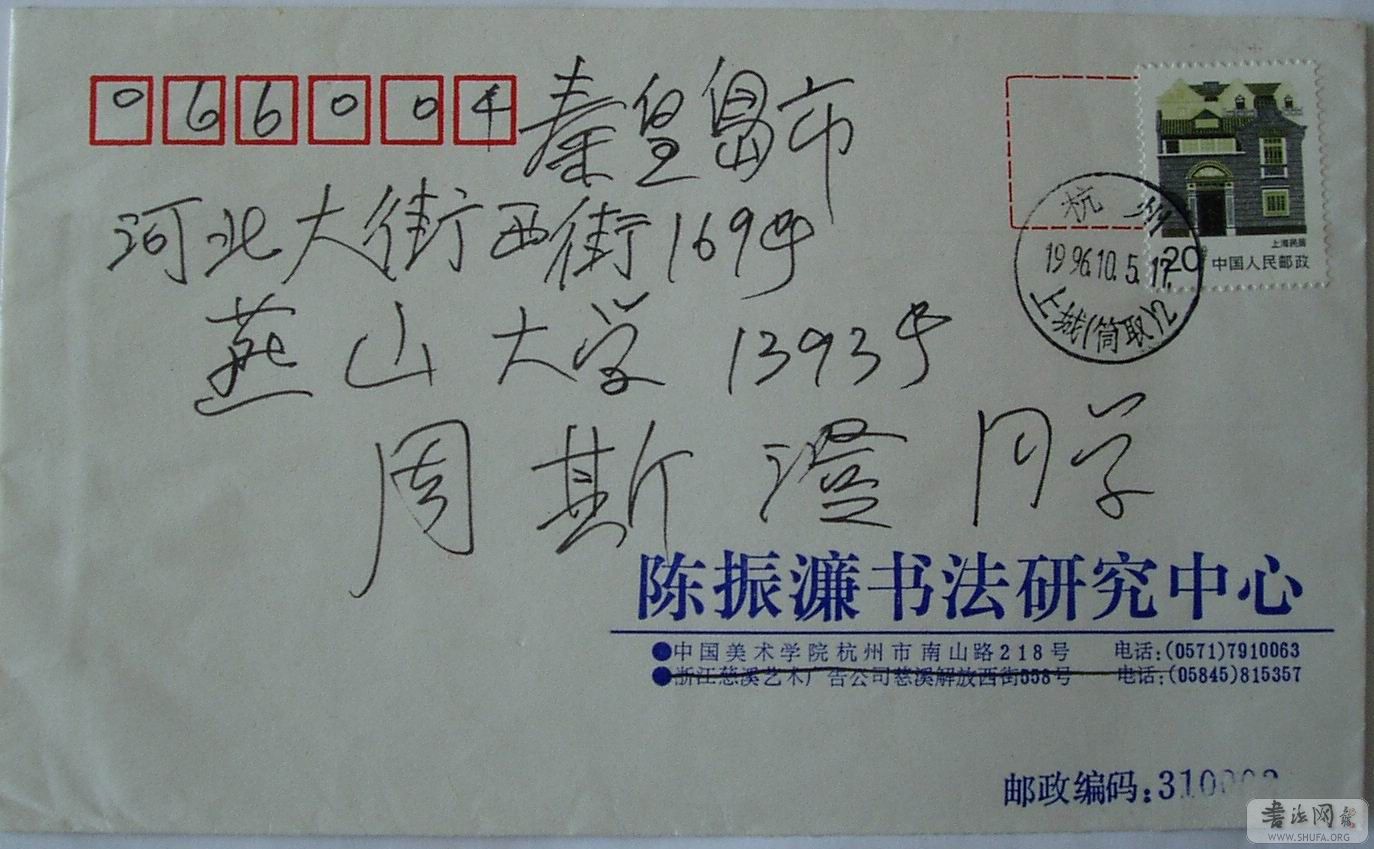 066004 秦皇岛市
河北大街西街169号
燕山大学 1393号
周斯澄同学
上海民居
20 中国人民邮政
杭州
1996.10.5.17
上城(筒取)2
陈振濂书法研究中心
●中国美术学院杭州市南山路218号 电话:(0571)7910063
●浙江慈溪艺术广告公司慈溪解放西街558号 电话:(05845)815357
邮政编码:310002
书法网
WWW.SHUFA.ORG